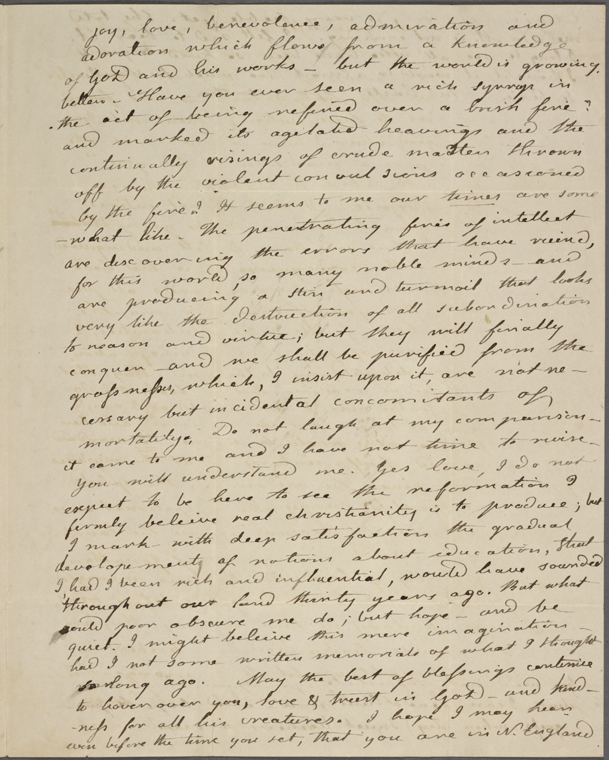 joy, love, benevolence, admiration and
adoration which flows from a knowledge
of God and his works - but the world is growing
better. - Have you ever seen a rich syrrop in
the act of being refined over a brisk fire?
and marked its agetated heavings and the
continually risings of crude matter thrown
off by the violent convulsions occasioned
by the fire? It seems to me our times are some
-what like - The penetrating fires of intellect
are discovering the errors that have ruined,
for this world, so many noble minds - and
are producing a stir and turmoil that looks
very like the destruction of all subordination
to reason and virtue; but they will finally
conquer - and we shall be purified from the
grossnesses, which, I insist upon it, are not ne-
cessary but incidental concomitants of
mortality. Do not laugh at my comparison -
it came to me and I have not time to revise -
You will understand me. Yes love, I do not
expect to be here to see the reformation I
firmly beleive real christianity is to produce; but
I mark with deep satisfaction the gradual
developements of notions about education, that
I had I been rich and influential, would have sounded
throughout our land thirty years ago. But what
could poor obscure me do; but hope - and be
quiet. I might beleive this mere imagination -
had I not some written memorials of what I thought
so long ago. May the best of blessings continue
to hover over you, love & trust in God - and kind-
-ness for all his creatures. I hope I may hear
even before the time you set, that you are in N. England